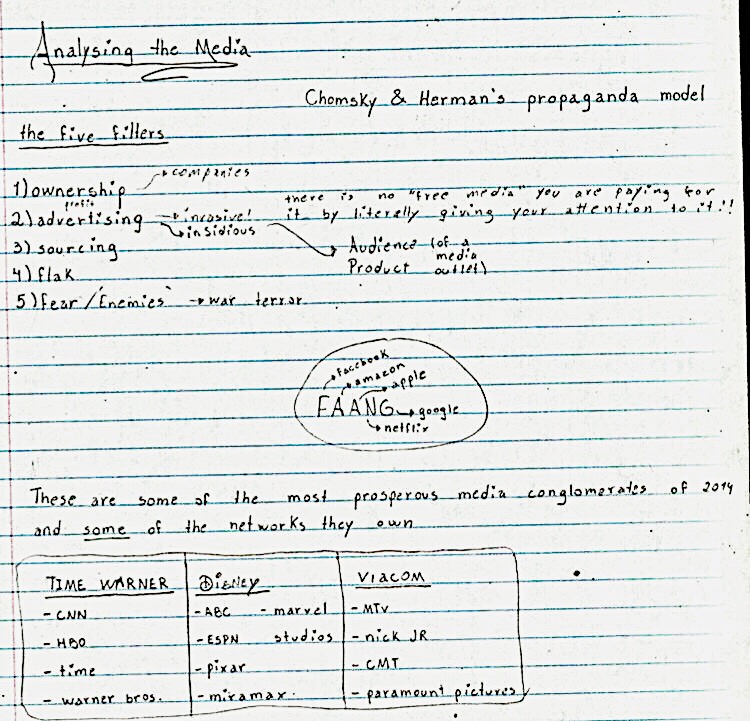 Analysing the Media
Chomsky & Herman's propaganda model
the five filters
1) ownership → companies
profit
2) advertising → invasive! → insidious
there is no "free media" you are paying for
it by literally giving your attention to it!!
Audience (of a
Product media
outlet)
3) sourcing
4) flak
5) fear / 'Enemies' → war terror
→ Facebook
→ amazon
→ apple
FAANG → google
→ netflix
These are some of the most prosperous media conglomerates of 2014
and some of the networks they own
TIME WARNER Disney VIACOM
- CNN - ABC - marvel - MTV
- HBO - ESPN studios - nick JR
- time - pixar - CMT
- warner bros. - miramax. - paramount pictures